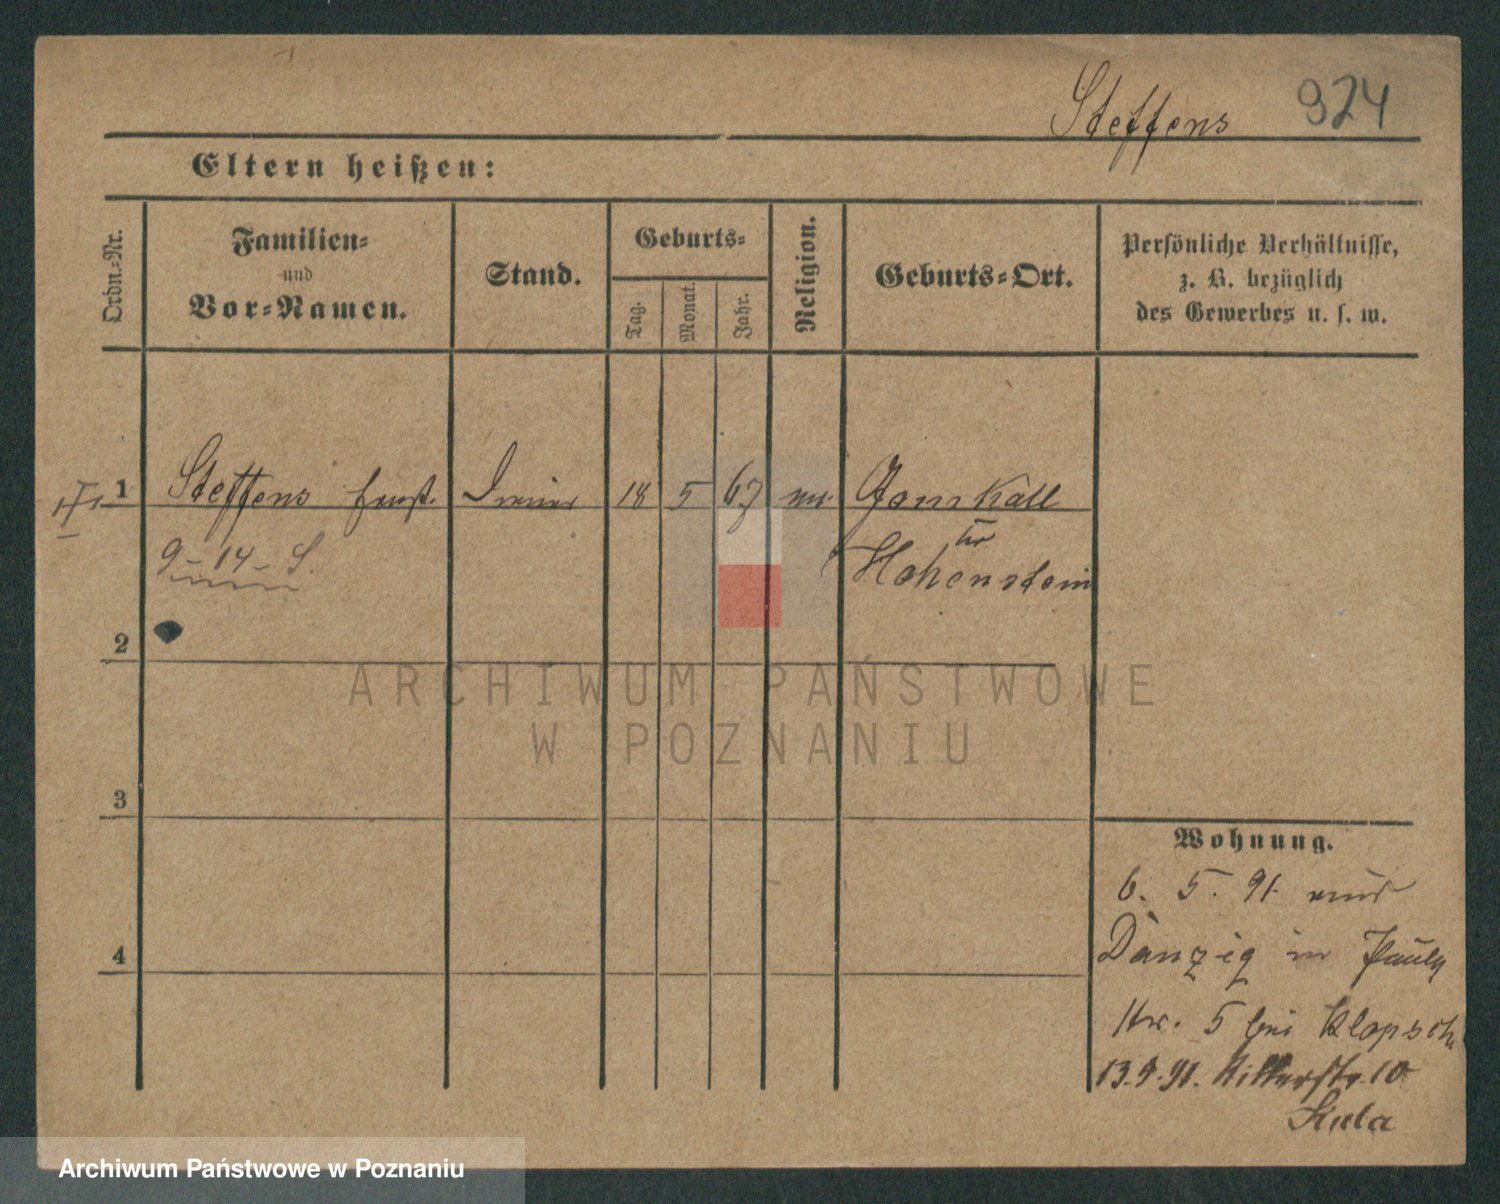 Steffens 924
Eltern heißen:
Ordn.-Nr.
Familien-
und
Vor-Namen.
Stand.
Geburts-
Tag.
Monat.
Jahr.
Religion.
Geburts-Ort.
Persönliche Verhältnisse,
z. B. bezüglich
des Gewerbes u. s. w.
1 Steffens Ernst. 18 5 67
in
Hohenstein
9-14-S.
2
3
4
Wohnung.
6. 5. 91
Danzig in Pauly
5 bei Klopsch
13.9.91. Ritterstr. 10
ARCHIWUM PAŃSTWOWE
W POZNANIU
Archiwum Państwowe w Poznaniu